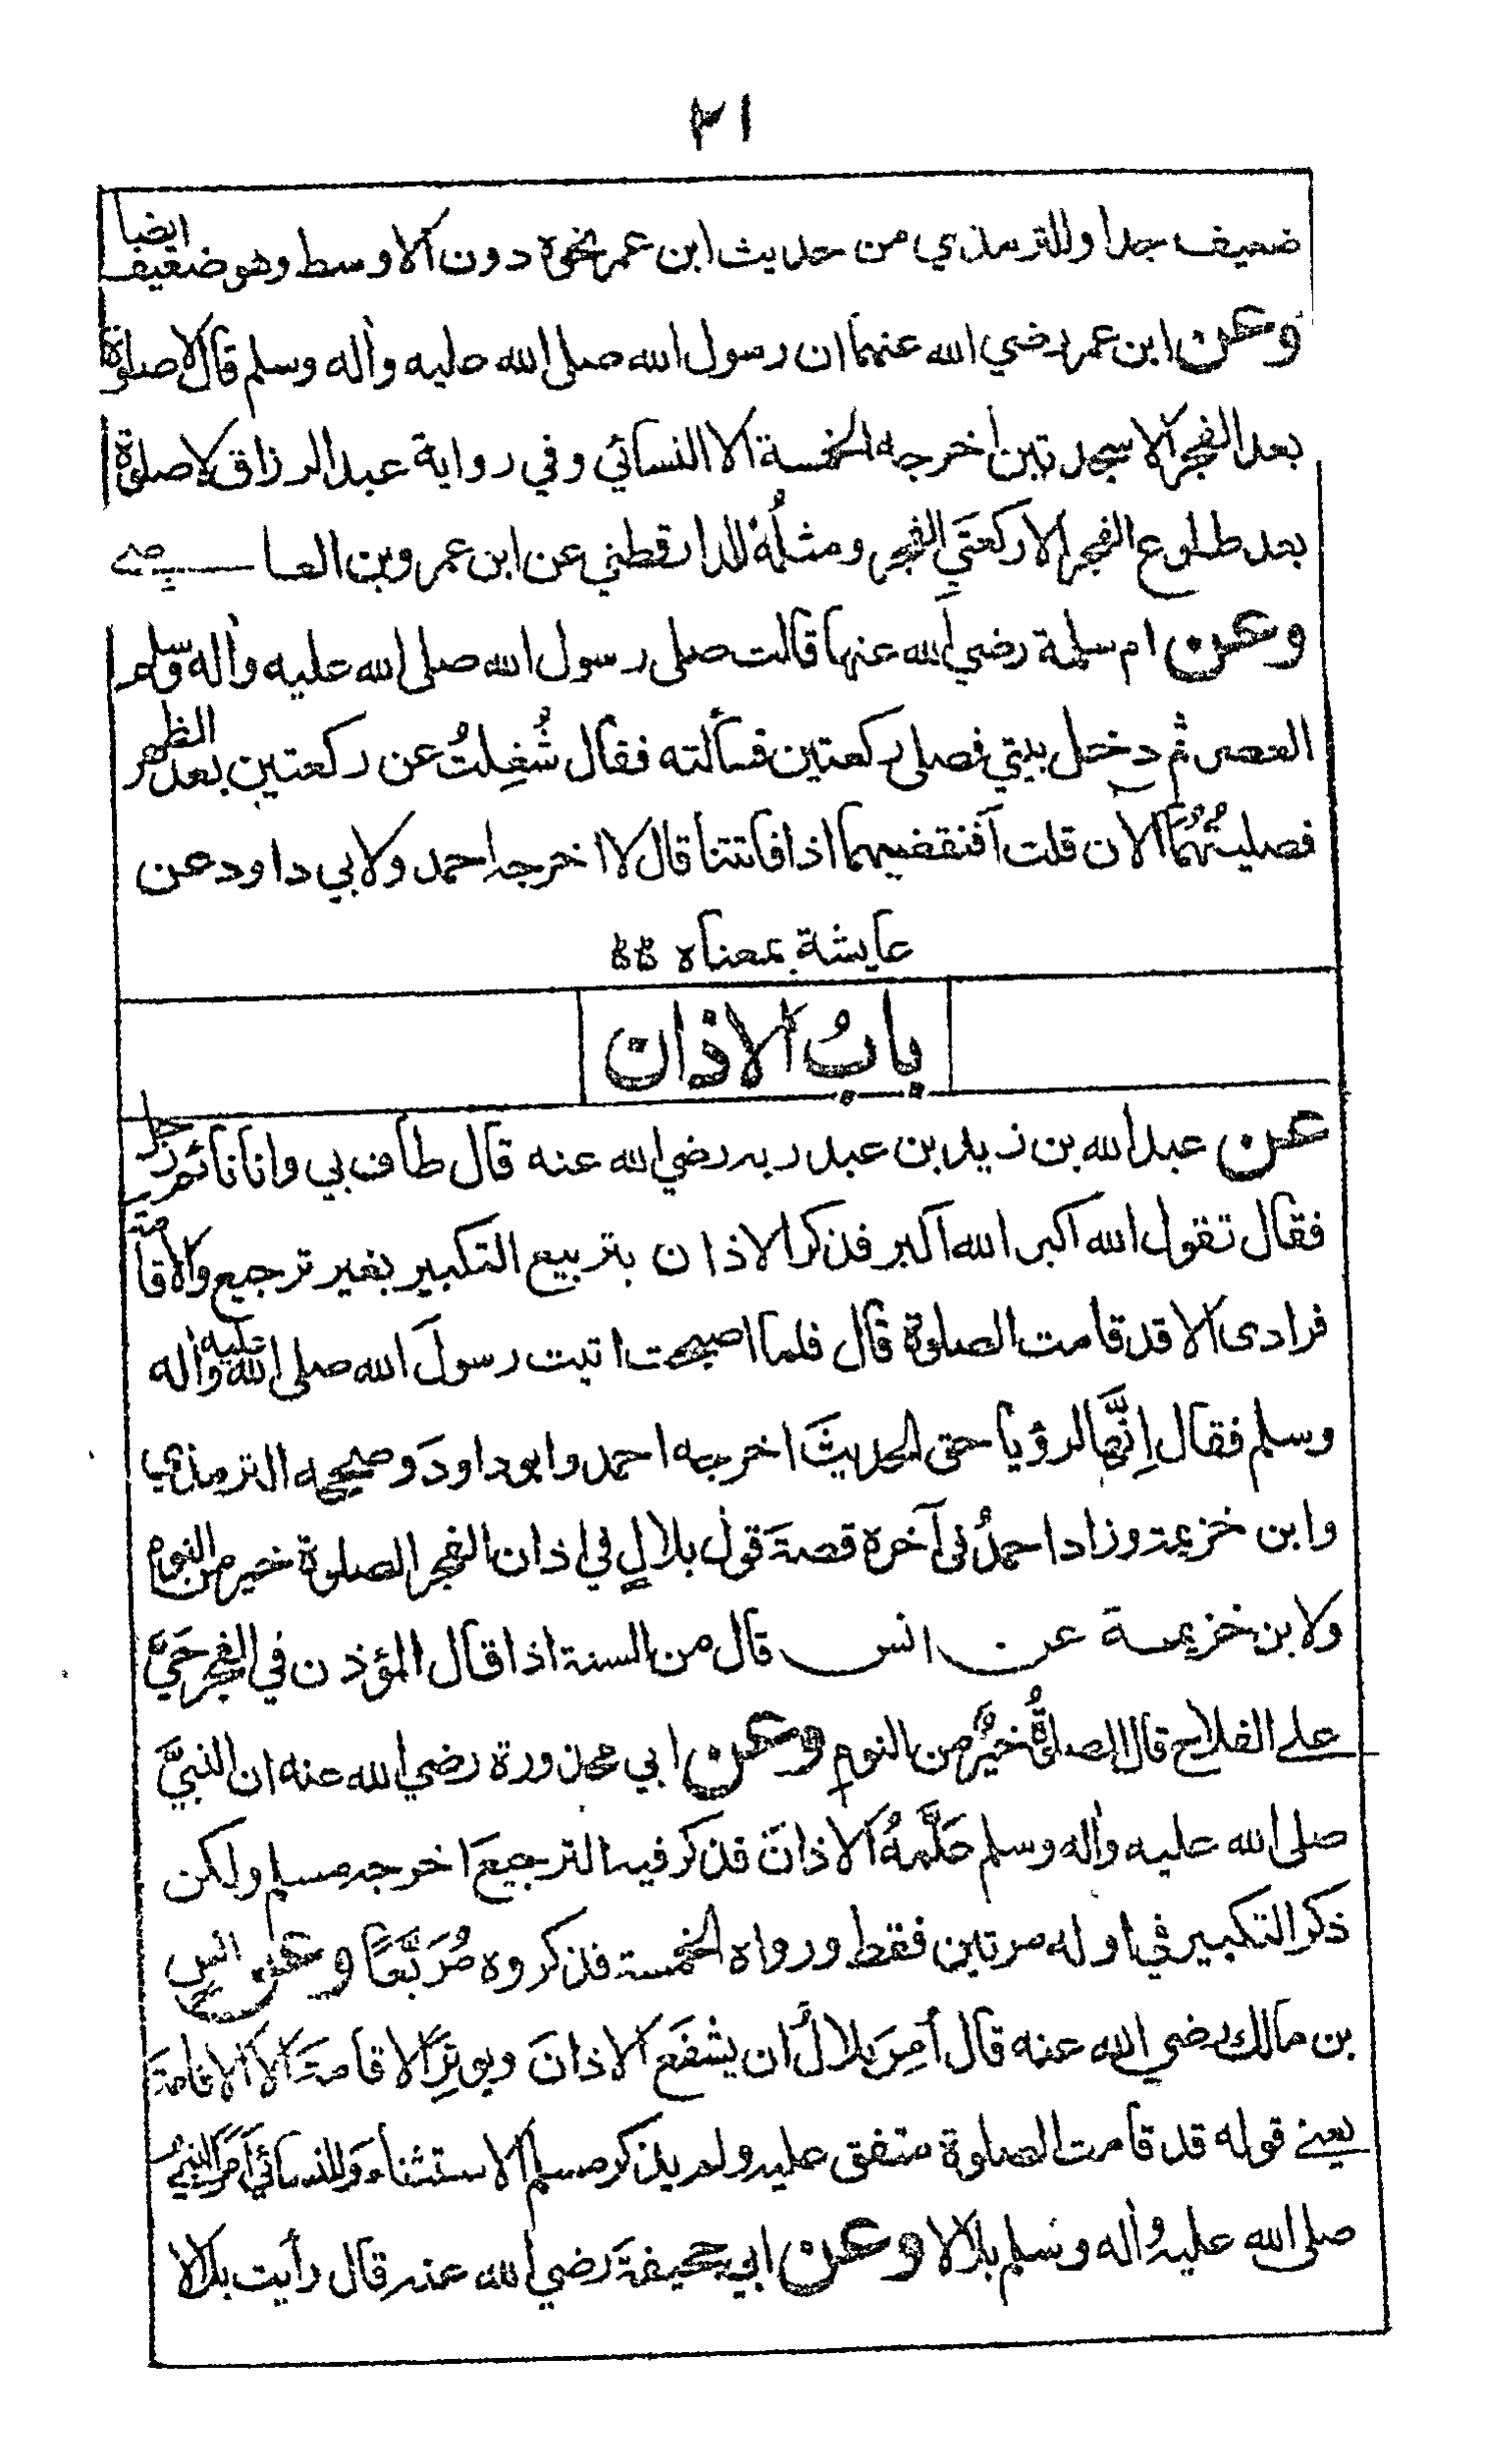 ٢١
ضعيف جدا وللترمذي من حديث ابن عمر نحوه دون الاوسط وهو ضعيف ايضا
وعن ابن عمر رضي الله عنهما ان رسول الله صلى الله عليه وآله وسلم قال لا صلوة
بعد الفجر الا سجدتين اخرجه الخمسة الا النسائي وفي رواية عبد الرزاق لا صلوة
بعد طلوع الفجر الا ركعتَيِ الفجر ومثلُهُ للدارقطني عن ابن عمرو بن العاصے
وعن ام سلمة رضي الله عنها قالت صلى رسول الله صلى الله عليه وآله وسلم
العصر ثم دخل بيتي فصلى ركعتين فسألته فقال شُغِلتُ عن ركعتين بعد الظهر
فصليتُهُمَا الآن قلت أفنقضيهما اذا فاتتنا قال لا اخرجه احمد ولابي داود عن
عايشة بمعناه
بابُ الاذان
عن عبد الله بن زيد بن عبد ربه رضي الله عنه قال طاف بي وانا نائم رجل
فقال تقول الله اكبر الله اكبر فذكر الاذان بتربيع التكبير بغير ترجيع والاقامة
فرادى الا قد قامت الصلوة قال فلما اصبحت اتيت رسولَ الله صلى الله عليه وآله
وسلم فقال اِنَّها لرؤيا حق الحديثَ اخرجه احمد وابو داودَ وصححه الترمذي
وابن خزيمة وزاد احمدُ في آخره قصةَ قول بلالٍ في اذان الفجر الصلوة خير من النوم
ولابن خزيمة عن انس قال من السنة اذا قال المؤذن في الفجر حَيَّ
علے الفلاح قال الصلوةُ خيرٌ من النوم وعن ابي محذورة رضي الله عنه ان النبيَّ
صلى الله عليه وآله وسلم عَلَّمهُ الاذانَ فذكر فيه الترجيعَ اخرجه مسلم ولكن
ذكر التكبير في اوله مرتين فقط ورواه الخمسة فذكروه مُرَبَّعًا وعن انسِ
بن مالك رضي الله عنه قال أُمِرَ بلالٌ ان يشفَع الاذانَ ويوتِرَ الاقامةَ الا الاقامةَ
يعنے قوله قد قامت الصلوة متفق عليه ولم يذكر مسلم الاستثناء وللنسائي أمَرَ النبيُّ
صلى الله عليه وآله وسلم بلالا وعن ابي جحيفةَ رضي الله عنه قال رأيت بلالا